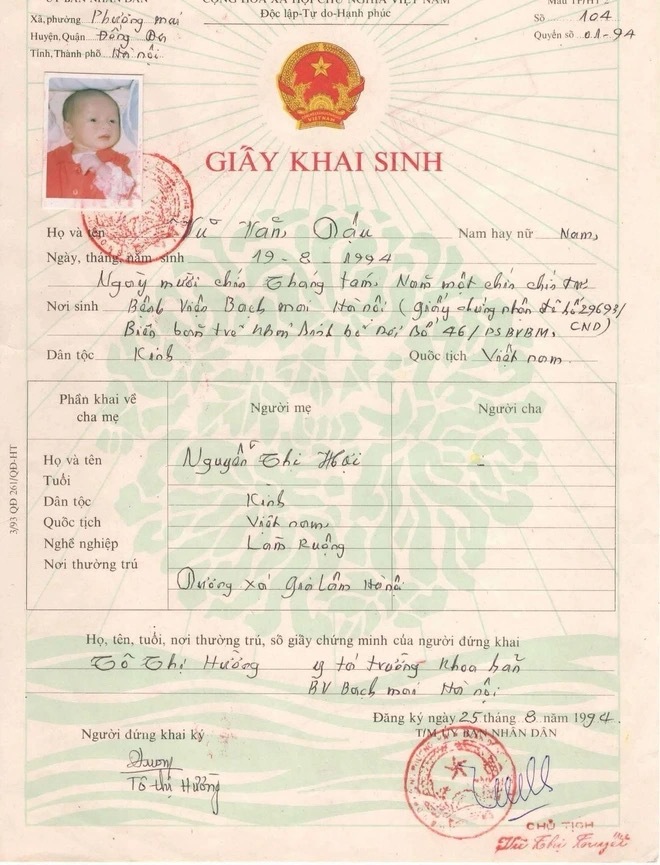 ỦY BAN NHÂN DÂN
CỘNG HÒA XÃ HỘI CHỦ NGHĨA VIỆT NAM
Mẫu TP/HT2
Xã, phường Phường mai
Độc lập-Tự do-Hạnh phúc
Số 104
Huyện, Quận Đống Đa
Quyển số 01-94
Tỉnh, Thành phố Hà nội
VIỆT NAM
GIẤY KHAI SINH
Họ và tên Vũ Văn Dậu Nam hay nữ Nam
Ngày, tháng, năm sinh 19-8-1994
Ngày mười chín Tháng tám, Năm một chín chín tư
Nơi sinh Bệnh Viện Bạch mai Hà nội (giấy chứng nhận số 29693/
Biên bản trẻ sinh bỏ rơi Số 46/PSBVBM, CND)
Dân tộc Kinh Quốc tịch Việt nam
Phần khai về cha mẹ Người mẹ Người cha
Họ và tên Nguyễn Thị Hợi -
Tuổi
Dân tộc Kinh
Quốc tịch Việt nam
Nghề nghiệp Làm Ruộng
Nơi thường trú
Dương xá Gia Lâm Hà nội
3/93 QĐ 261/QĐ-HT
Họ, tên, tuổi, nơi thường trú, số giấy chứng minh của người đứng khai
Tô Thị Hường y tá trưởng Khoa
BV Bạch mai Hà nội
Đăng ký ngày 25 tháng 8 năm 1994.
Người đứng khai ký
T/M ỦY BAN NHÂN DÂN
Tô thị Hường
CHỦ TỊCH
Vũ Thị Tuyết